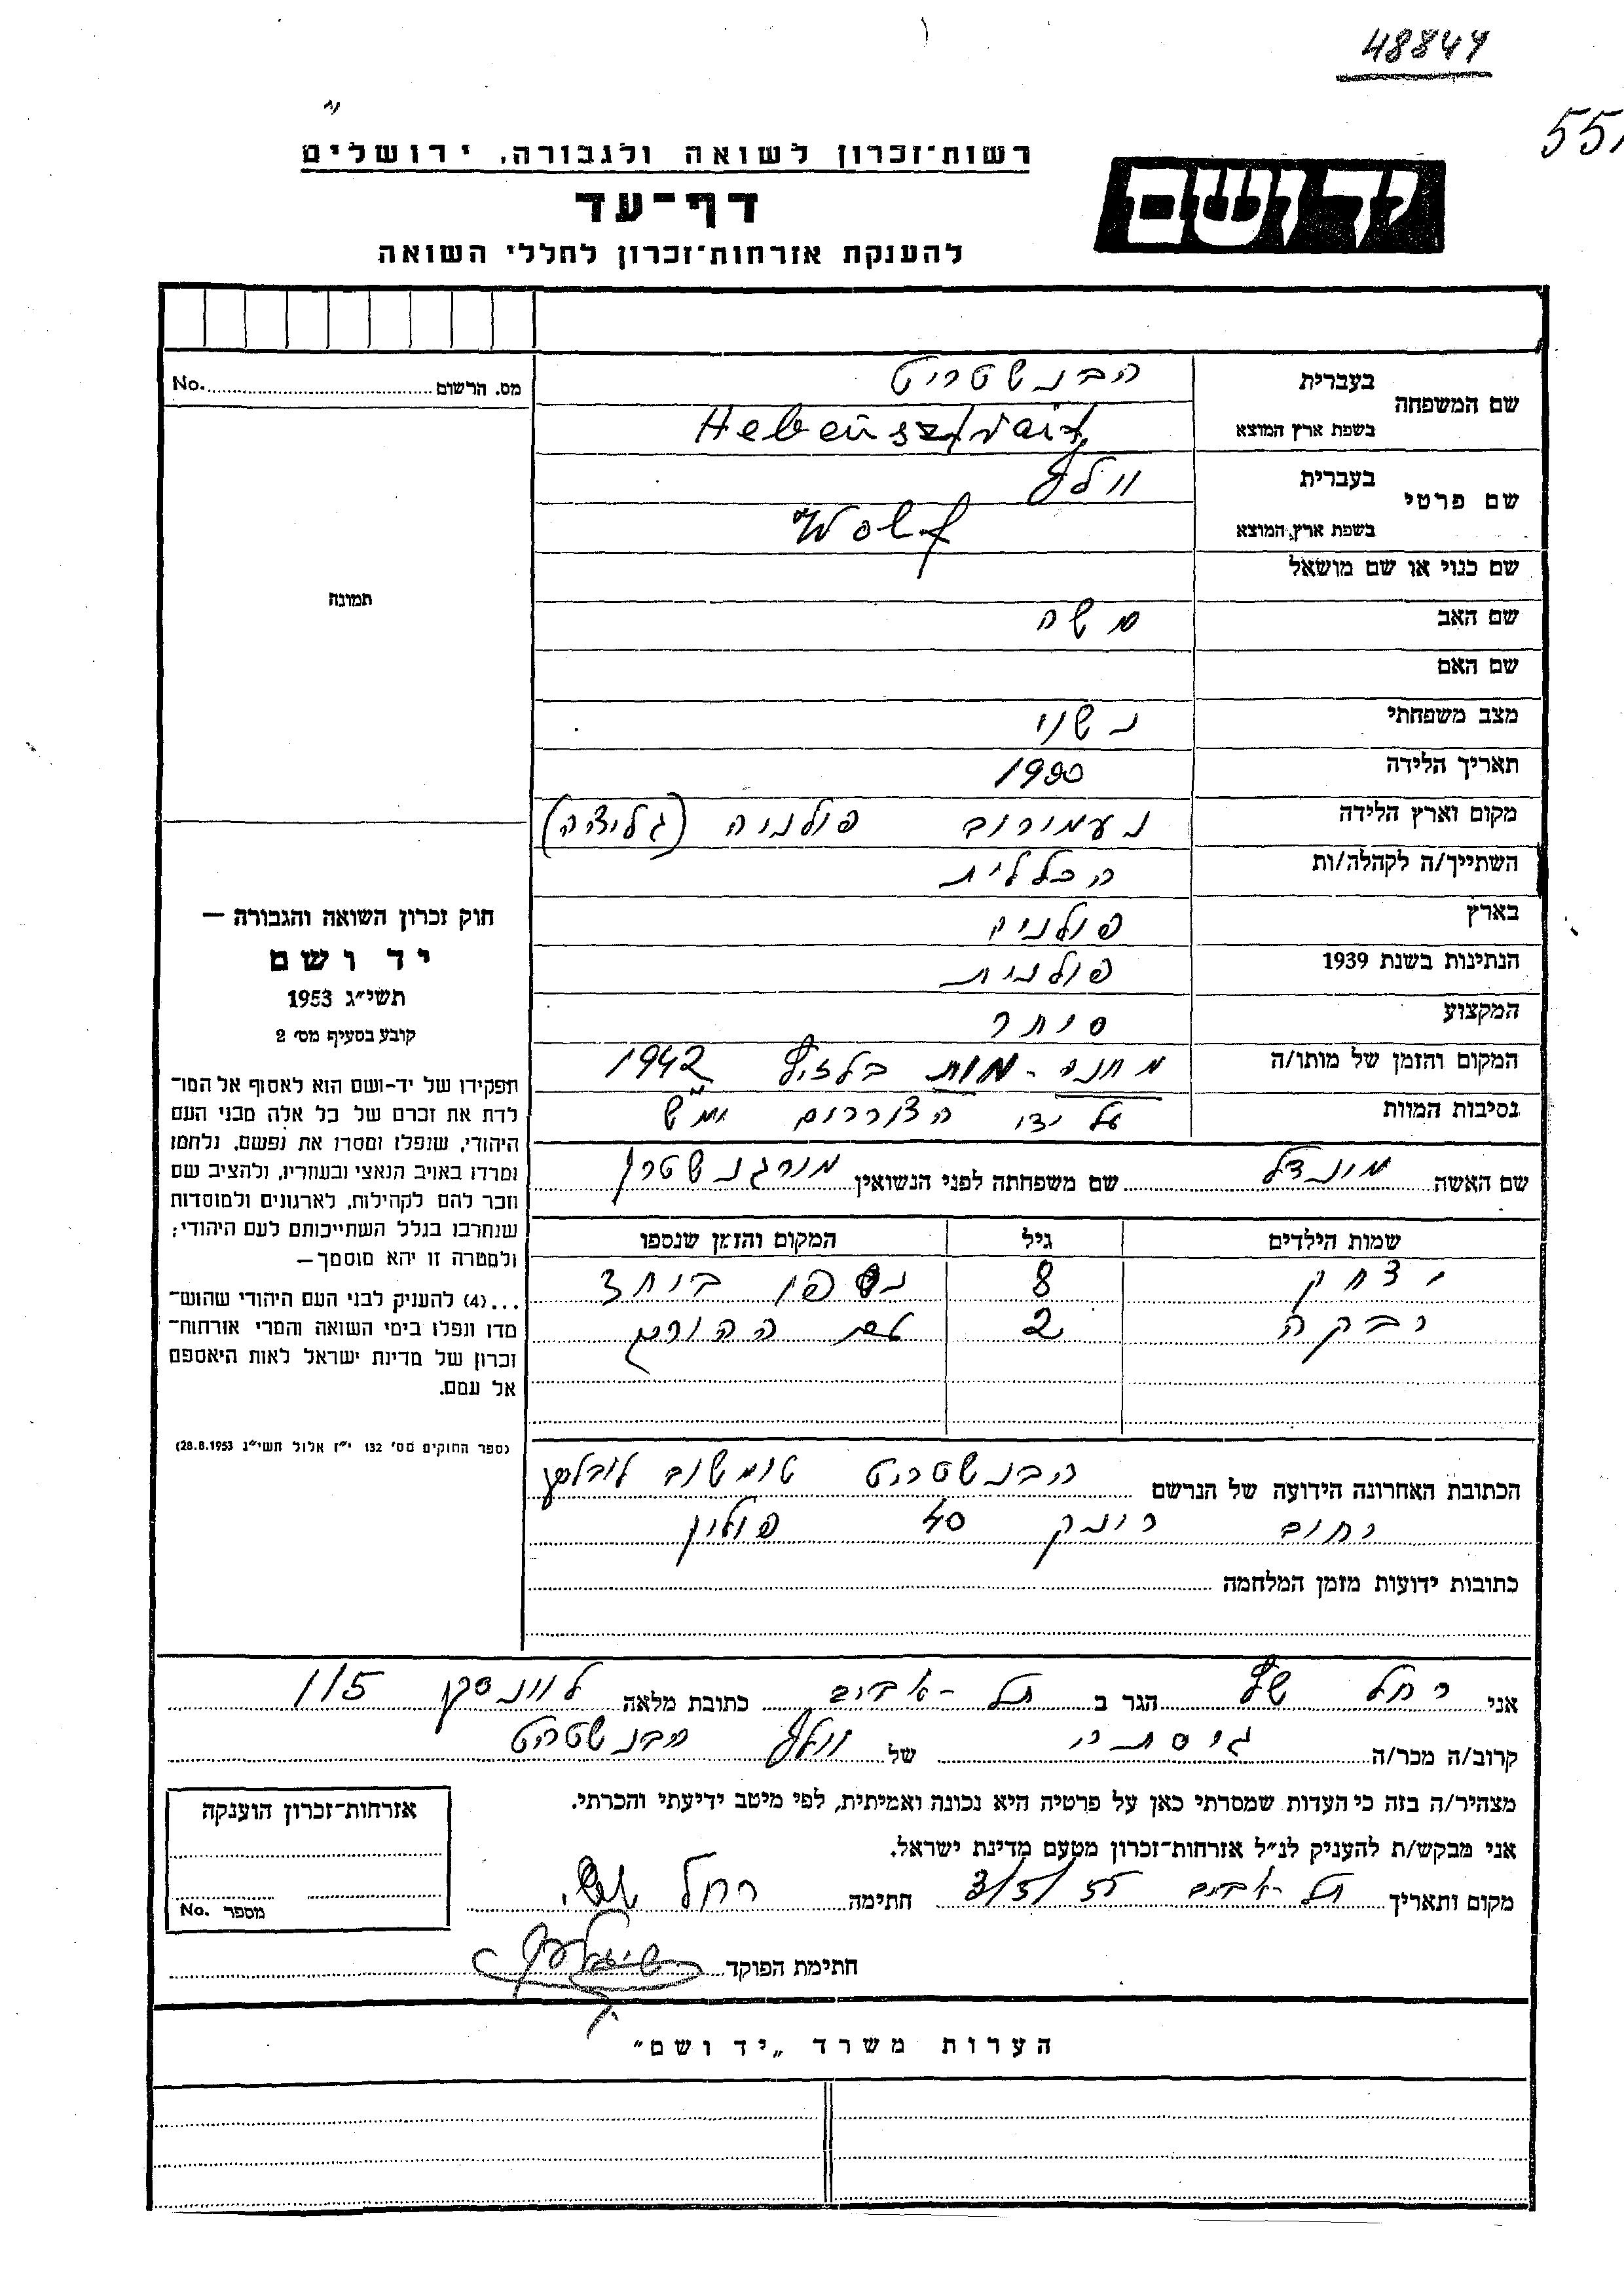 48849
55
רשות־זכרון לשואה ולגבורה, ירושלים
יד ושם
דף־עד
להענקת אזרחות־זכרון לחללי השואה
מס. הרשום No.
שם המשפחה בעברית הבנשטרייט
בשפת ארץ המוצא Hebensztrait
שם פרטי בעברית וולף
בשפת ארץ המוצא Wolf
שם כנוי או שם מושאל
שם האב משה
שם האם
מצב משפחתי נשוי
תאריך הלידה 1900
מקום וארץ הלידה נעמירוב פולניה (גליציה)
השתייך/ה לקהלה/ות הכללית
בארץ פולניה
הנתינות בשנת 1939 פולנית
המקצוע סוחר
המקום והזמן של מותו/ה מחנה-מות בלזיץ 1942
נסיבות המוות על ידי הצוררים ימ"ש
תמונה
חוק זכרון השואה והגבורה —
יד ושם
תשי״ג 1953
קובע בסעיף מס׳ 2
תפקידו של יד-ושם הוא לאסוף אל המו־
לדת את זכרם של כל אלה מבני העם
היהודי, שנפלו ומסרו את נפשם, נלחמו
ומרדו באויב הנאצי ובעוזריו, ולהציב שם
וזכר להם לקהילות, לארגונים ולמוסדות
שנחרבו בגלל השתייכותם לעם היהודי;
ולמטרה זו יהא מוסמך —
...(4) להעניק לבני העם היהודי שהוש־
מדו ונפלו בימי השואה והמרי אזרחות־
זכרון של מדינת ישראל לאות היאספם
אל עמם.
(ספר החוקים מס׳ 132 י״ז אלול תשי״ג 28.8.1953)
שם האשה מינדל שם משפחתה לפני הנשואין מורגנשטרן
שמות הילדים גיל המקום והזמן שנספו
יצחק 8 נספו ביחד
רבקה 2 עם ההורים
הכתובת האחרונה הידועה של הנרשם הבנשטרייט טומשוב לובלסקי
רחוב רינק 40 פולין
כתובות ידועות מזמן המלחמה
אני רחל הגר ב תל-אביב כתובת מלאה לוינסקי 115
קרוב/ה מכר/ה גיסתה של וולף הבנשטריט
מצהיר/ה בזה כי העדות שמסרתי כאן על פרטיה היא נכונה ואמיתית, לפי מיטב ידיעתי והכרתי.
אני מבקש/ת להעניק לנ״ל אזרחות־זכרון מטעם מדינת ישראל.
מקום ותאריך תל-אביב 3/5/55 חתימה רחל
חתימת הפוקד
אזרחות־זכרון הוענקה
מספר No.
הערות משרד „יד ושם״